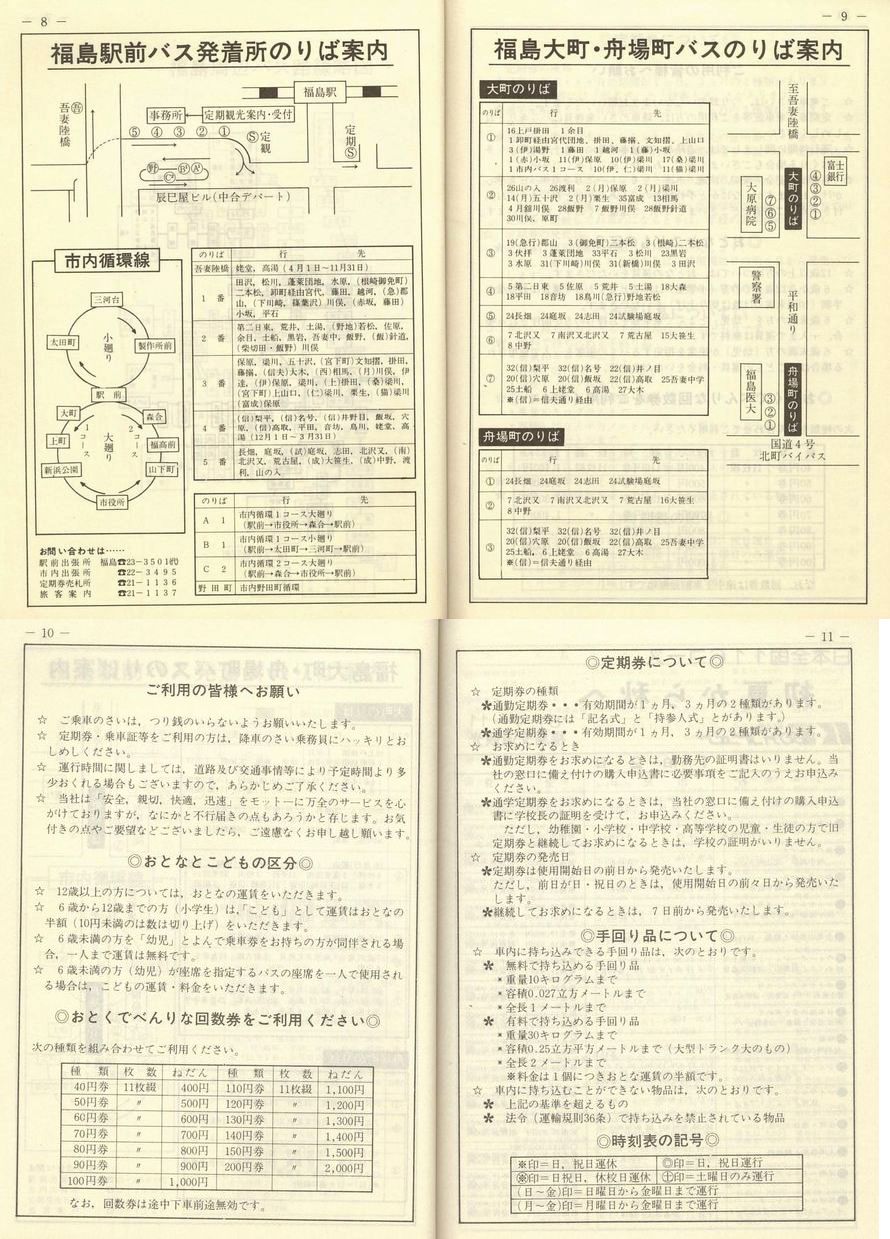 — 8 —
福島駅前バス発着所のりば案内
福島駅
吾妻陸橋
吾
事務所
定期観光案内・受付
⑤ ④ ③ ② ①
Ⓢ定観
定期Ⓢ
野
B¹ A¹
C²
辰巳屋ビル(中合デパート)
市内循環線
三河台
太田町
小廻り
製作所前
駅前
大町
森合
上町
1コース
大廻り
2コース
福高前
新浜公園
山下町
市役所
のりば 行 先
吾妻陸橋 姥堂, 高湯 (4月1日〜11月31日)
1番 田沢, 松川, 蓬莱団地, 水原, (根崎御免町)
二本松, 卸町経由宮代, 藤田, 越河, (急)郡
山, (下川崎, 篠葉沢) 川俣, (赤坂, 藤田)
小坂, 平石
2番 第二日東, 荒井, 土湯, (野地)若松, 佐原,
余目, 土船, 黒岩, 吾妻中, 飯野, (飯)針道,
(柴切田・飯野) 川俣
3番 保原, 梁川, 五十沢, (宮下町)文知摺, 掛田,
藤搦, (信夫)大木, (西)相馬, (月)川俣, 伊
達, (伊)保原, 梁川, (上)掛田, (桑)梁川,
(宮下町)上山口, (仁)梁川, 栗生, (猫)梁川
(富成)保原
4番 (信)梨平, (信)名号, (信)井野目, 飯坂, 穴
原, (信)高取, 平田, 音坊, 鳥川, 姥堂, 高
湯 (12月1日〜3月31日)
5番 長畑, 庭坂, (試)庭坂, 志田, 北沢又, (南)
北沢又, 荒古屋, (成)大笹生, (成)中野, 渡
利, 山の入
のりば 行 先
A 1 市内循環1コース大廻り
(駅前→市役所→森合→駅前)
B 1 市内循環1コース小廻り
(駅前→太田町→三河町→駅前)
C 2 市内循環2コース大廻り
(駅前→森合→市役所→駅前)
野田町 市内野田町循環
お問い合わせは……
駅前出張所 福島☎23-3501㈹
市内出張所 ☎22-3495
定期券売札所 ☎21-1136
旅客案内 ☎21-1137
— 9 —
福島大町・舟場町バスのりば案内
大町のりば
のりば 行 先
① 16上戸掛田 1余目
1卸町経由宮代団地, 掛田, 藤搦, 文知摺, 上山口
3(伊)湯野 1藤田 1越河 1(藤)小坂
1(赤)小坂 11(伊)保原 10(伊)梁川 17(桑)梁川
1市内バス1コース 10(伊, 仁)梁川 11(猫)梁川
② 26山の入 26渡利 2(月)保原 2(月)梁川
14(月)五十沢 2(月)栗生 35富成 13相馬
4月舘川俣 28飯野 7飯野川俣 28飯野針道
30川俣, 原町
③ 19(急行)郡山 3(御免町)二本松 3(根崎)二本松
3伏拝 3蓬莱団地 33平石 3松川 23黒岩
3水原 31(下川崎)川俣 31(新橋)川俣 3田沢
④ 5第二日東 5佐原 5荒井 5土湯 18大森
18平田 18音坊 18鳥川(急行)野地若松
⑤ 24長畑 24庭坂 24志田 24試験場庭坂
⑥ 7北沢又 7南沢又北沢又 7荒古屋 15大笹生
8中野
⑦ 32(信)梨平 32(信)名号 22(信)井ノ目
20(信)穴原 20(信)飯坂 22(信)高取 25吾妻中学
25土船 6上姥堂 6高湯 27大木
※(信)=信夫通り経由
舟場町のりば
のりば 行 先
① 24長畑 24庭坂 24志田 24試験場庭坂
② 7北沢又 7南沢又北沢又 7荒古屋 16大笹生
8中野
③ 32(信)梨平 32(信)名号 32(信)井ノ目
20(信)穴原 20(信)飯坂 22(信)高取 25吾妻中学
25土船, 6上姥堂 6高湯 27大木
※(信)=信夫通り経由
至吾妻陸橋
富士銀行
大町のりば
④③②①
大原病院
⑦⑥⑤
警察署
平和通り
福島医大
舟場町のりば
③②①
国道4号
北町バイパス
— 10 —
ご利用の皆様へお願い
☆ ご乗車のさいは, つり銭のいらないようお願いいたします。
☆ 定期券・乗車証等をご利用の方は, 降車のさい乗務員にハッキリとお
しめしください。
☆ 運行時間に関しましては, 道路及び交通事情等により予定時間より多
少おくれる場合もございますので, あらかじめご了承ください。
☆ 当社は「安全, 親切, 快適, 迅速」をモットーに万全のサービスを心
がけておりますが, なにかと不行届きの点もあろうかと存じます。お気
付きの点やご要望などございましたら, ご遠慮なくお申し越し願います。
◎おとなとこどもの区分◎
☆ 12歳以上の方については, おとなの運賃をいただきます。
☆ 6歳から12歳までの方 (小学生) は,「こども」として運賃はおとなの
半額 (10円未満のは数は切り上げ) をいただきます。
☆ 6歳未満の方を「幼児」とよんで乗車券をお持ちの方が同伴される場
合, 一人まで運賃は無料です。
☆ 6歳未満の方 (幼児) が座席を指定するバスの座席を一人で使用され
る場合は, こどもの運賃・料金をいただきます。
◎おとくでべんりな回数券をご利用ください◎
次の種類を組み合わせてご利用ください。
種類 枚数 ねだん 種類 枚数 ねだん
40円券 11枚綴 400円 110円券 11枚綴 1,100円
50円券 〃 500円 120円券 〃 1,200円
60円券 〃 600円 130円券 〃 1,300円
70円券 〃 700円 140円券 〃 1,400円
80円券 〃 800円 150円券 〃 1,500円
90円券 〃 900円 200円券 〃 2,000円
100円券 〃 1,000円
なお, 回数券は途中下車前途無効です。
11 —
◎定期券について◎
☆ 定期券の種類
✽通勤定期券・・・有効期間が1ヵ月, 3ヵ月の2種類があります。
(通勤定期券には「記名式」と「持参人式」とがあります。)
✽通学定期券・・・有効期間が1ヵ月, 3ヵ月の2種類があります。
☆ お求めになるとき
✽通勤定期券をお求めになるときは, 勤務先の証明書はいりません。当
社の窓口に備え付けの購入申込書に必要事項をご記入のうえお申込み
ください。
✽通学定期券をお求めになるときは, 当社の窓口に備え付けの購入申込
書に学校長の証明を受けて, お申込みください。
ただし, 幼稚園・小学校・中学校・高等学校の児童・生徒の方で旧
定期券と継続してお求めになるときは, 学校の証明がいりません。
☆ 定期券の発売日
✽定期券は使用開始日の前日から発売いたします。
ただし, 前日が日・祝日のときは, 使用開始日の前々日から発売いた
します。
✽継続してお求めになるときは, 7日前から発売いたします。
◎手回り品について◎
☆ 車内に持ち込みできる手回り品は, 次のとおりです。
✽ 無料で持ち込める手回り品
*重量10キログラムまで
*容積0.027立方メートルまで
*全長1メートルまで
✽ 有料で持ち込める手回り品
*重量30キログラムまで
*容積0.25立方平方メートルまで (大型トランク大のもの)
*全長2メートルまで
※料金は1個につきおとな運賃の半額です。
☆ 車内に持ち込むことができない物品は, 次のとおりです。
✽ 上記の基準を超えるもの
✽ 法令 (運輸規則36条) で持ち込みを禁止されている物品
◎時刻表の記号◎
※印=日, 祝日運休 ◎印=日, 祝日運行
㊡印=日祝日, 休校日運休 ㊏印=土曜日のみ運行
(日〜金)印=日曜日から金曜日まで運行
(月〜金)印=月曜日から金曜日まで運行